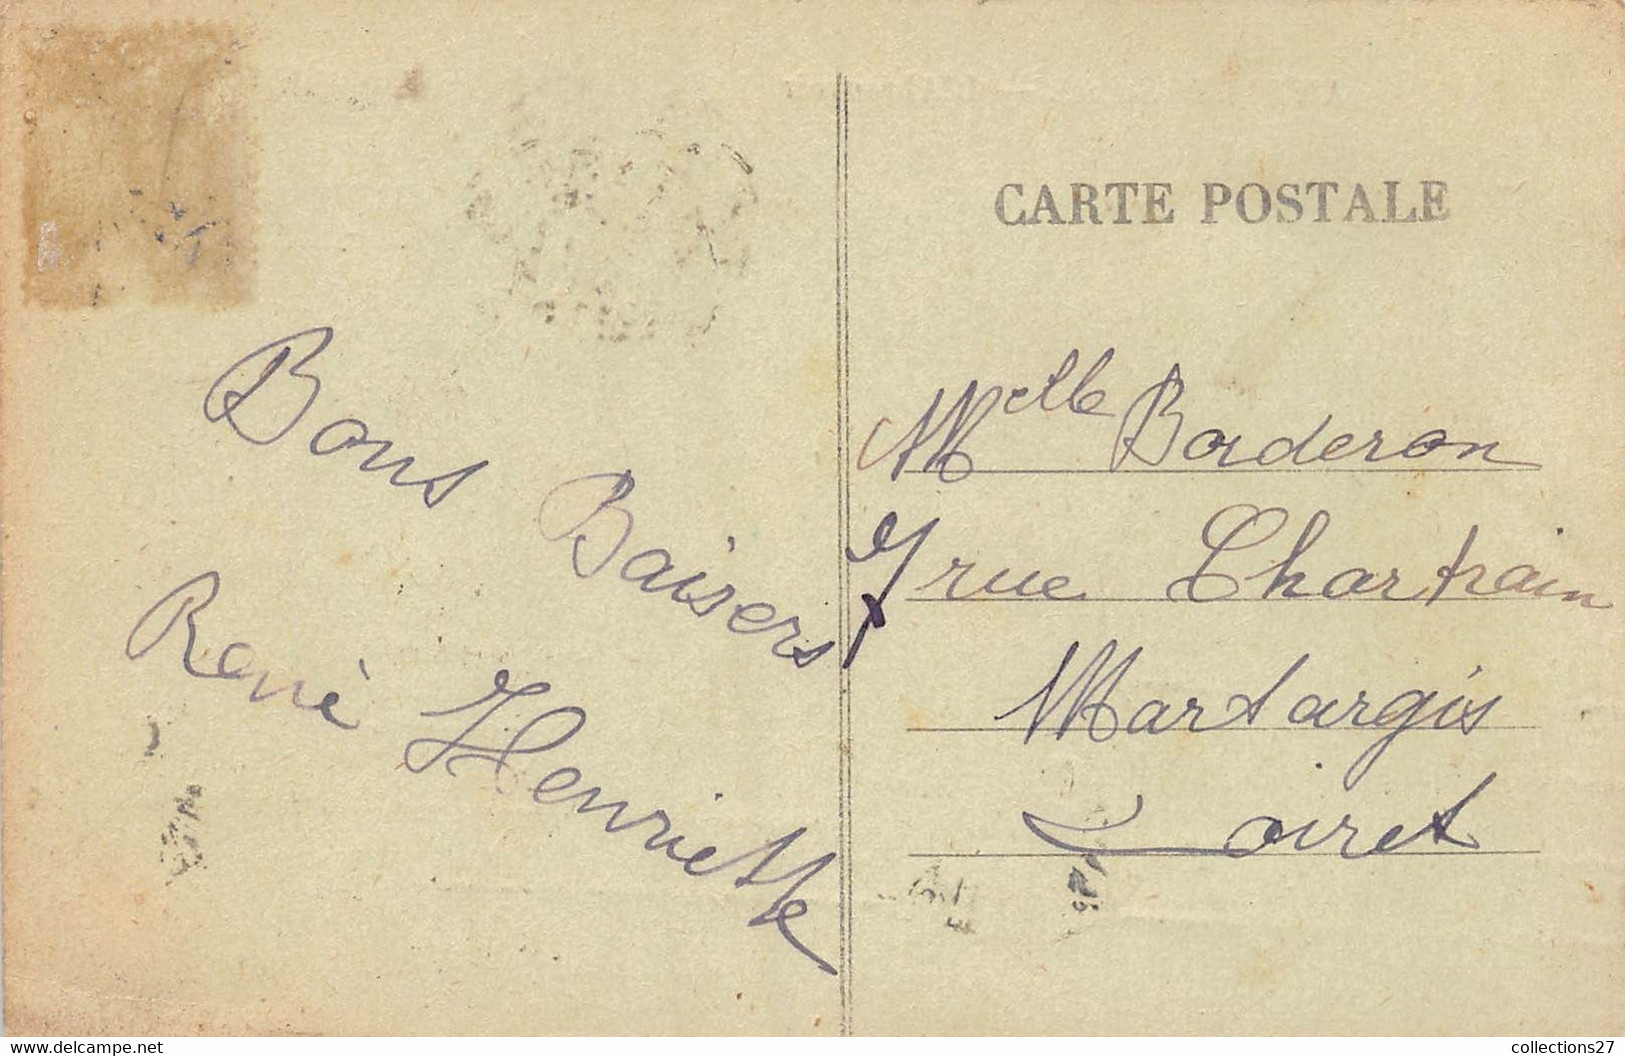 CARTE POSTALE
Bons Baisers
René Henriette
Melle Borderon
7 rue Chartrain
Martargis
Loiret
www.delcampe.net
collections27